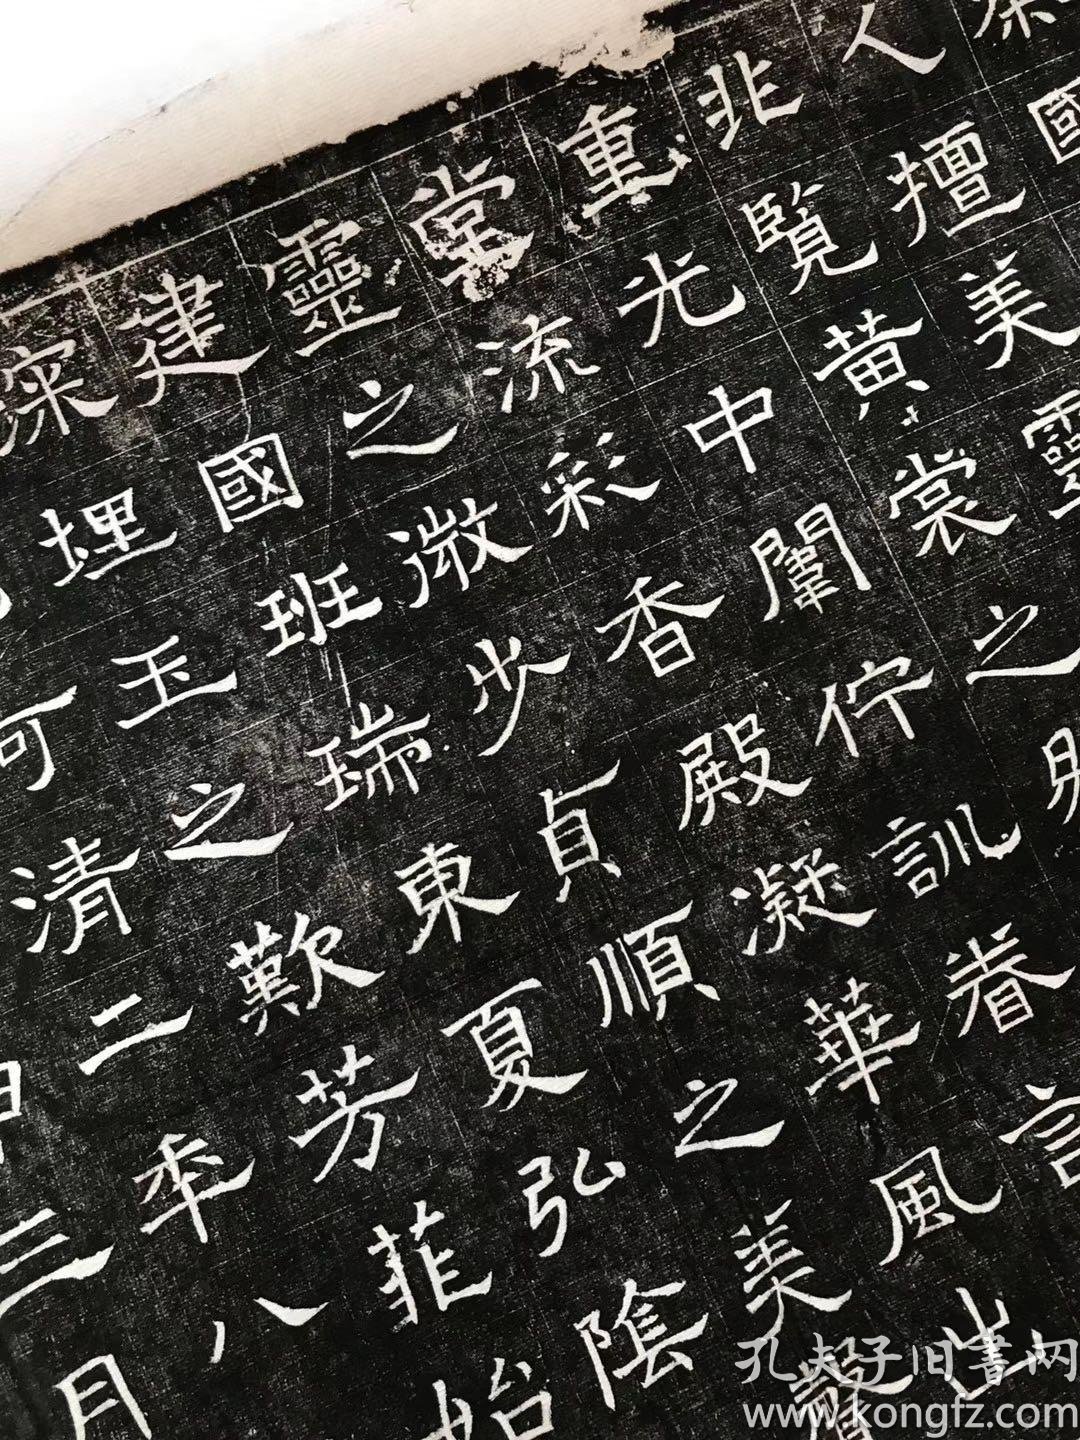 國
人擅美靈
北覽黃裳之
重光中闈佇訓眷言
堂流彩香殿凝華風出
靈之微少貞順之美聲
建國班瑞東夏弘陰
深埋玉之歎芳菲始
可清二年八
三月
孔夫子旧書网
www.kongfz.com